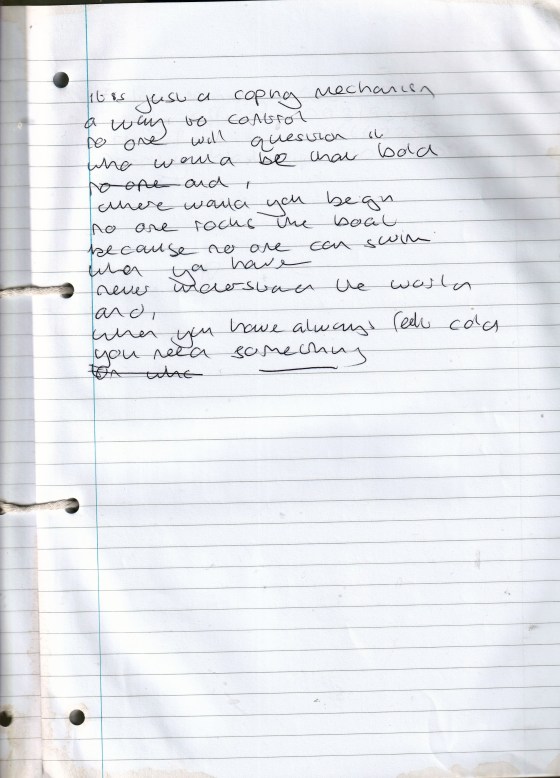 it is just a coping mechanism
a way to control
no one will question it
who would be that bold
no one and,
where would you begin
no one rocks the boat
because no one can swim
when you have
never understood the world
and,
when you have always feels cold
you need something